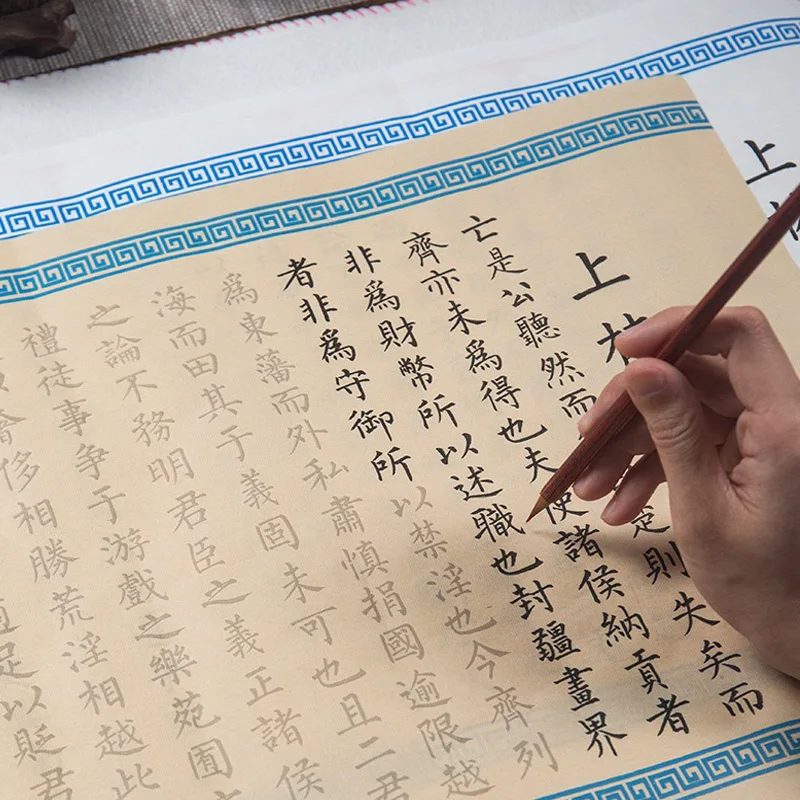 上
上
亡是公聽然而
則失矣而
齊亦未為得也夫使諸侯納貢者
非為財幣所以述職也封疆畫界
者非為守御所以禁淫也今齊列
為東藩而外私肅慎捐國逾限越
海而田其于義固未可也且二君
之論不務明君臣之義正諸侯
禮徒事争于游戲之樂苑囿
奢侈相勝荒淫相越此
足以貶君